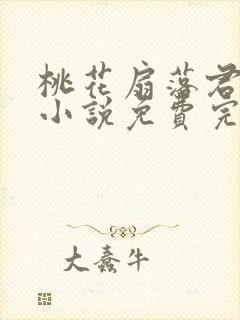 桃花扇落君
小說免費完
大蠢牛